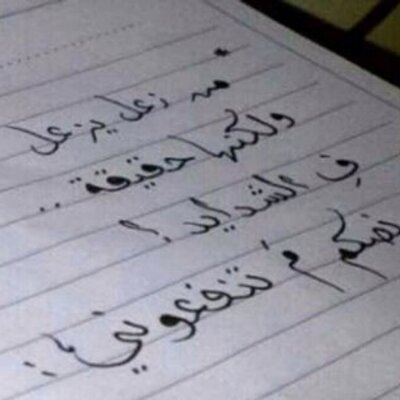 * من زعل يزعل
ولكنها حقيقة ..
في الشدايد !
نصكم مَ تنفعوني :